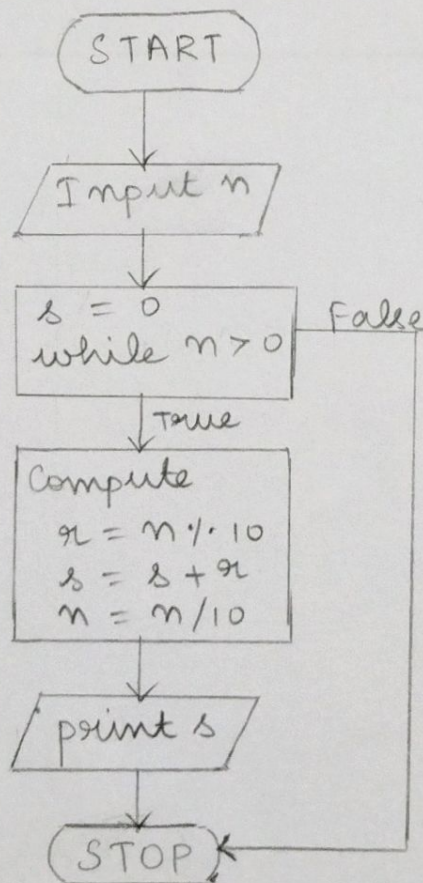 START
Input n
s = 0
while n > 0
False
True
Compute
r = n % 10
s = s + r
n = n / 10
print s
STOP